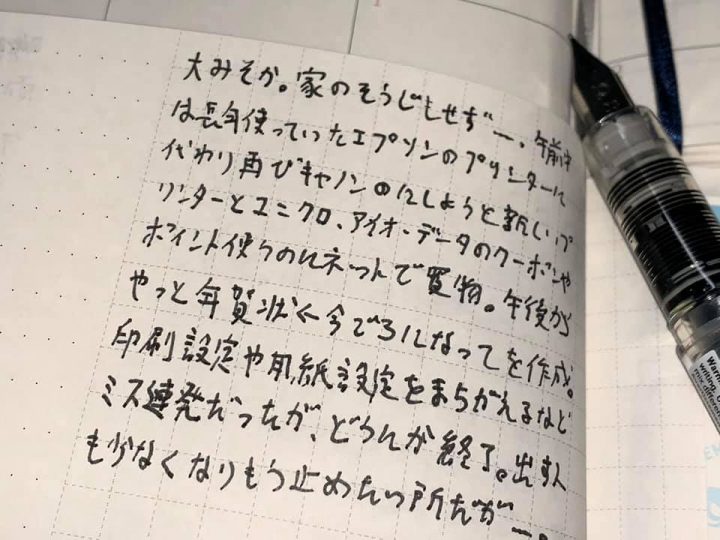 大みそか。家のそうじもせずー、午前中
は長年使っていたエプソンのプリンターに
代わり再びキヤノンのにしようと新しいプ
リンターとユニクロ、アイオーデータのクーポンや
ポイント使うのにネットで買物。午後から
やっと年賀状←今ごろになってを作成。
印刷設定や用紙設定をまちがえるなど
ミス連発だったが、どうにか終了。出す人
も少なくなりもう止めたい所だがー。
Warning
writing,